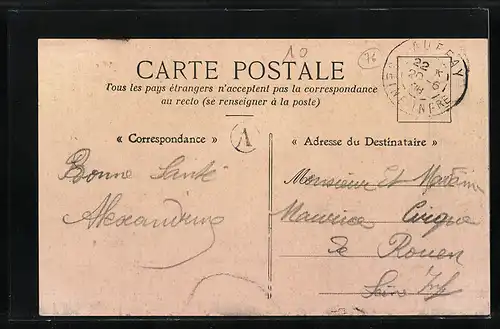 10
76
CARTE POSTALE
Tous les pays étrangers n'acceptent pas la correspondance
au recto (se renseigner à la poste)
AUFFAY
22
SEINE INFRE
« Correspondance »
A
« Adresse du Destinataire »
Bonne Santé
Alexandrine
Monsieur Et Madame
Maurice
Rouen
Seine Inf